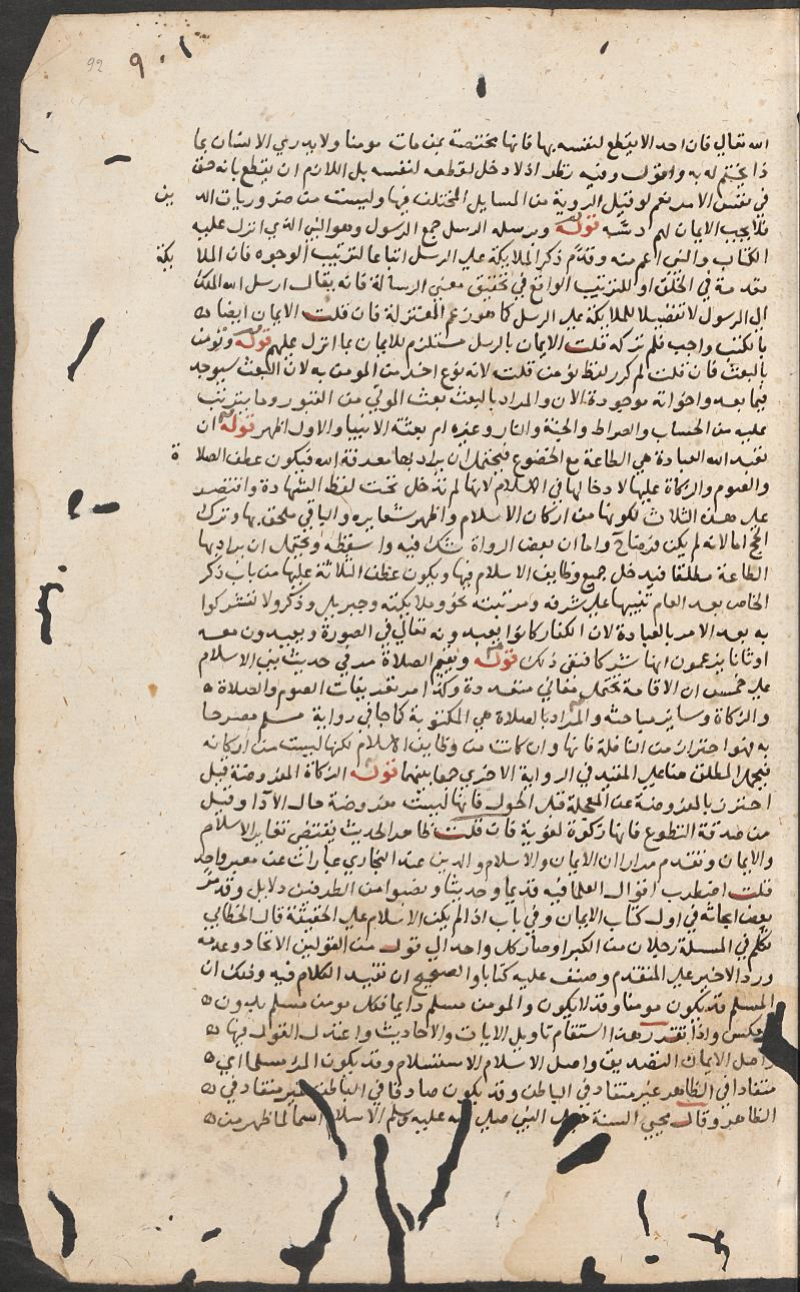 92 ٩٠١
الله تعالى فان احد الا يقطع لنفسه بها فانها مختصة بمن مات مومنا ولا يدري الانسان بما
ذا يختم له به واقول وفيه نظر اذ لا دخل لقطعه لنفسه بل اللازم ان يقطع بانه حق
في نفس الامر نعم لو قيل الروية من المسايل المختلف فيها وليست من ضروريات الد ين
فلا يجب الايمان لهم قوله وبرسله الرسل جمع الرسول وهو النبي الذي انزل عليه
الكتاب والنبي اعم منه وقدم ذكر الملايكة على الرسل اتباعا لترتيب الوجود فان الملا يكة
مقدمة في الخلق او للترتيب الواقع في تحقيق معنى الرسالة فانه يقال ارسل الله الملك
الى الرسول لا تفضيلا للملايكة على الرسل كما هو زعم المعتزلة فان قلت الايمان ايضا
بالكتب واجب فلم تركه قلت الايمان بالرسل مستلزم للايمان بما انزل عليهم قوله وتومن
بالبعث فان قلت لم كرر لفظ تؤمن قلت لانه نوع اخر من المومن به لان البعث سيوجد
فيما بعد واخواته موجودة الان والمراد بالبعث بعث الموتى من القبور وما يترتب
عليه من الحساب والصراط والجنة والنار وغيره ام بعثة الانبيا والاول اظهر قوله ان
تعبد الله العبادة هي الطاعة مع الخضوع فيحتمل ان يراد بها معرفة الله فيكون عطف الصلا ة
والصوم والزكاة عليها لادخالها في الاسلام لانها لم تدخل تحت لفظ الشهادة واقتصر
على هذه الثلاث لكونها من اركان الاسلام واظهر شعايره والباقي ملحق بها وترك
الحج اما لانه لم يكن فرض واما ان بعض الرواة شك فيه واسقطه ويحتمل ان يراد بها
الطاعة مطلقا فيدخل جميع وظايف الاسلام فيها ويكون عطف الثلاثة عليها من باب ذكر
الخاص بعد العام تنبيها على شرفه ومزيته نحو وملايكته وجبريل وذكر ولا تشركوا
به بعد الامر بالعبادة لان الكفار كانوا يعبدونه تعالى في الصورة ويعبدون معه
اوثانا يزعمون انها شركا فنفى ذلك قوله وتقيم الصلاة مر في حديث بني الاسلام
على خمس ان الاقامة تحتمل معاني متعددة وكذا مر تعريفات الصوم والصلاة
والزكاة وساير مباحثه والمراد بالصلاة هي المكتوبة كما جا في رواية مسلم مصرحا
به فهو احتراز من النافلة فانها وان كانت من وظايف الاسلام لكنها ليست من اركانه
فيحمل المطلق هنا على المقيد في الرواية الاخرى جمعا بينهما قوله الزكاة المفروضة قيل
احترز بالمفروضة عن المعجلة قبل الحول فانها ليست مفروضة حال الادا وقيل
من صدقة التطوع فانها زكوة لغوية فان قلت ظاهر الحديث يقتضي تغاير الاسلام
والايمان وتقدم مرارا ان الايمان والاسلام والدين عند البخاري عبارات عن معنى واحد
قلت اضطرب اقوال العلما فيه قديما وحديثا ونصبوا من الطرفين دلايل وقد مر
بعض ابحاثه في اول كتاب الايمان وفي باب اذا لم يكن الاسلام على الحقيقة قال الخطابي
تكلم في المسلة رجلان من الكبرا وصار كل واحد الى قول من القولين الاتحاد وعدمه
ورد الاخير على المتقدم وصنف عليه كتابا والصحيح ان تقييد الكلام فيه وذلك ان
المسلم قد يكون مومنا وقد لا يكون والمومن مسلم دايما فكل مومن مسلم بدون
عكس واذا تقرر هذا استقام تاويل الايات والاحاديث واعتدل القول فيها
واصل الايمان التصديق واصل الاسلام الاستسلام وقد يكون المر مسلما اي
منقادا في الظاهر غير منقاد في الباطن وقد يكون صادقا في الباطن غير منقاد في
الظاهر وقال محيي السنة جعل النبي صلى الله عليه وسلم الاسلام اسما لما ظهر من